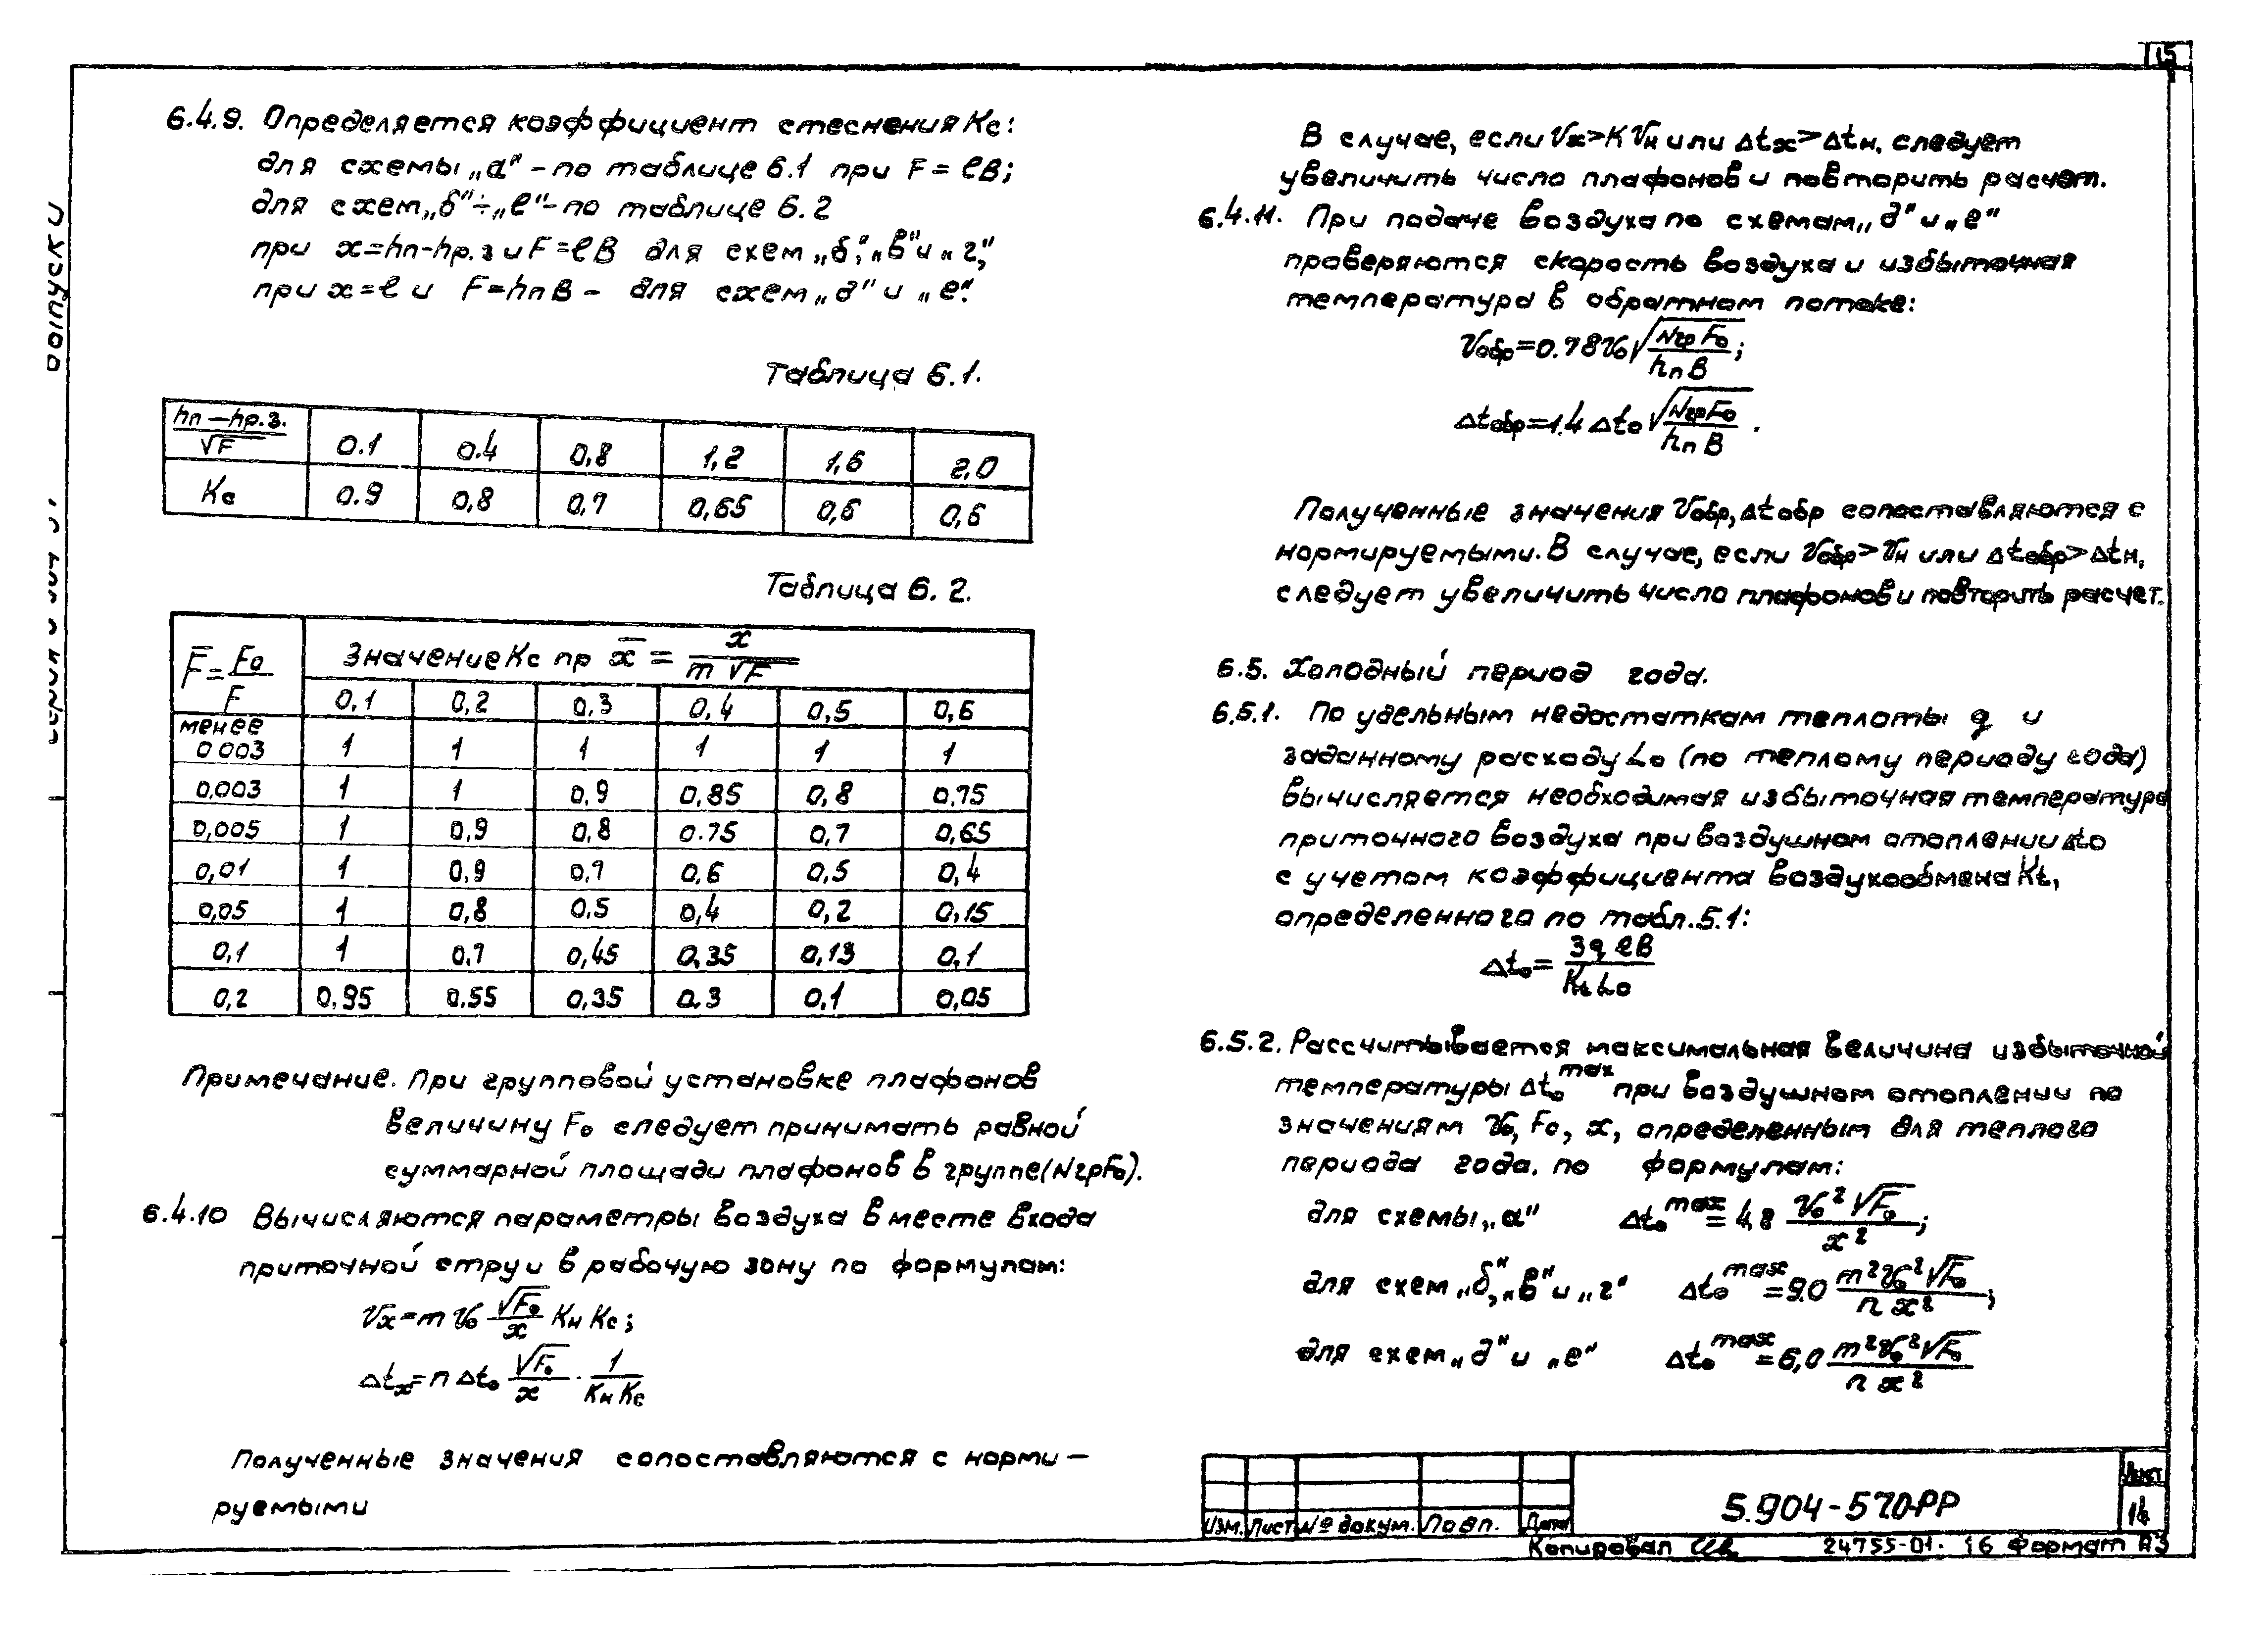 15
6.4.9. Определяется коэффициент стеснения Kс:
для схемы „а" – по таблице 6.1 при F = ℓB;
для схем „б" ÷ „е" – по таблице 6.2
при x = hп – hр.з и F = ℓB для схем „б", „в" и „г",
при x = ℓ и F = hп B – для схем „д" и „е".
Таблица 6.1.
hп – hр.з. / √F | 0.1 | 0.4 | 0,8 | 1,2 | 1,6 | 2,0
Kс | 0.9 | 0,8 | 0,7 | 0,65 | 0,6 | 0,6
Таблица 6.2.
F̄ = F₀ / F | Значение Kс пр x̄ = x / m √F
0,1 | 0,2 | 0,3 | 0,4 | 0,5 | 0,6
менее
0 003 | 1 | 1 | 1 | 1 | 1 | 1
0,003 | 1 | 1 | 0,9 | 0,85 | 0,8 | 0,75
0,005 | 1 | 0,9 | 0,8 | 0.75 | 0,7 | 0,65
0,01 | 1 | 0,9 | 0,7 | 0,6 | 0,5 | 0,4
0,05 | 1 | 0,8 | 0,5 | 0,4 | 0,2 | 0,15
0,1 | 1 | 0,7 | 0,45 | 0,35 | 0,13 | 0,1
0,2 | 0,95 | 0.55 | 0,35 | 0.3 | 0,1 | 0,05
Примечание. При групповой установке плафонов
величину F₀ следует принимать равной
суммарной площади плафонов в группе (Nгр F₀).
6.4.10 Вычисляются параметры воздуха в месте входа
приточной струи в рабочую зону по формулам:
Vx = m V₀ √F₀ / x Kн Kс;
Δtx = n Δt₀ √F₀ / x · 1 / Kн Kс
Полученные значения сопоставляются с норми –
руемыми
В случае, если Vx > K Vн или Δtx > Δtн, следует
увеличить число плафонов и повторить расчет.
6.4.11. При подаче воздуха по схемам „д" и „е"
проверяются скорость воздуха и избыточная
температура в обратном потоке:
Vобр = 0.78 V₀ √(Nгр F₀ / hп B);
Δtобр = 1.4 Δt₀ √(Nгр F₀ / hп B).
Полученные значения Vобр, Δtобр сопоставляются с
нормируемыми. В случае, если Vобр > Vн или Δtобр > Δtн,
следует увеличить число плафонов и повторить расчет.
6.5. Холодный период года.
6.5.1. По удельным недостаткам теплоты q и
заданному расходу L₀ (по теплому периоду года)
вычисляется необходимая избыточная температура
приточного воздуха при воздушном отоплении Δt₀
с учетом коэффициента воздухообмена Kt,
определенного по табл. 5.1:
Δt₀ = 3q ℓB / Kt L₀
6.5.2. Рассчитывается максимальная величина избыточной
температуры Δt₀ max при воздушном отоплении по
значениям V₀, F₀, x, определенным для теплого
периода года. по формулам:
для схемы „а" Δt₀ max = 4,8 V₀² √F₀ / x²;
для схем „б", „в" и „г" Δt₀ max = 9.0 m² V₀² √F₀ / n x²;
для схем „д" и „е" Δt₀ max = 6,0 m² V₀² √F₀ / n x²
Изм. Лист № докум. Подп. Дата
5.904-570РР
Лист
14
Копировал 24755-01. 16 Формат А3